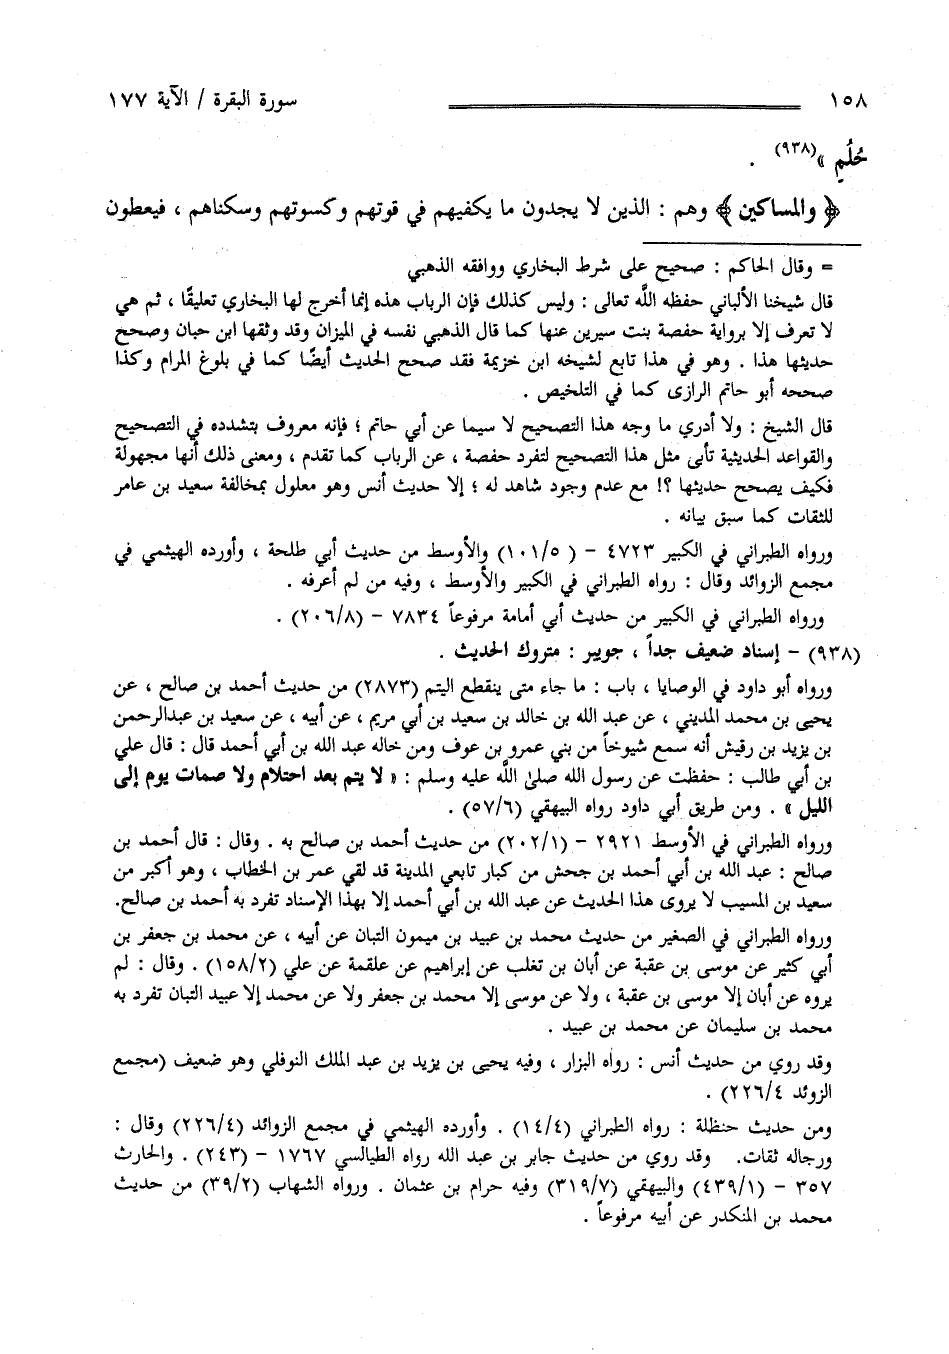 ١٥٨ سورة البقرة / الآية ١٧٧
حُلُمٍ »(٩٣٨) .
﴿ والمساكين ﴾ وهم : الذين لا يجدون ما يكفيهم في قوتهم وكسوتهم وسكناهم ، فيعطون
= وقال الحاكم : صحيح على شرط البخاري ووافقه الذهبي
قال شيخنا الألباني حفظه اللَّه تعالى : وليس كذلك فإن الرباب هذه إنما أخرج لها البخاري تعليقًا ، ثم هي
لا تعرف إلا برواية حفصة بنت سيرين عنها كما قال الذهبي نفسه في الميزان وقد وثقها ابن حبان وصحح
حديثها هذا . وهو في هذا تابع لشيخه ابن خزيمة فقد صحح الحديث أيضًا كما في بلوغ المرام وكذا
صححه أبو حاتم الرازى كما في التلخيص .
قال الشيخ : ولا أدري ما وجه هذا التصحيح لا سيما عن أبي حاتم ؛ فإنه معروف بتشدده في التصحيح
والقواعد الحديثية تأبى مثل هذا التصحيح لتفرد حفصة ، عن الرباب كما تقدم ، ومعنى ذلك أنها مجهولة
فكيف يصحح حديثها ؟! مع عدم وجود شاهد له ؛ إلا حديث أنس وهو معلول بمخالفة سعيد بن عامر
للثقات كما سبق بيانه .
ورواه الطبراني في الكبير ٤٧٢٣ - ( ١٠١/٥) والأوسط من حديث أبي طلحة ، وأورده الهيثمي في
مجمع الزوائد وقال : رواه الطبراني في الكبير والأوسط ، وفيه من لم أعرفه .
ورواه الطبراني في الكبير من حديث أبي أمامة مرفوعاً ٧٨٣٤ - (٢٠٦/٨) .
(٩٣٨) - إسناد ضعيف جداً ، جويبر : متروك الحديث .
ورواه أبو داود في الوصايا ، باب : ما جاء متى ينقطع اليتم (٢٨٧٣) من حديث أحمد بن صالح ، عن
يحيى بن محمد المديني ، عن عبد الله بن خالد بن سعيد بن أبي مريم ، عن أبيه ، عن سعيد بن عبدالرحمن
بن يزيد بن رقيش أنه سمع شيوخاً من بني عمرو بن عوف ومن خاله عبد الله بن أبي أحمد قال : قال علي
بن أبي طالب : حفظت عن رسول الله صلىٰ اللَّه عليه وسلم : « لا يتم بعد احتلام ولا صمات يوم إلى
الليل » . ومن طريق أبي داود رواه البيهقي (٥٧/٦) .
ورواه الطبراني في الأوسط ٢٩٢١ - (٢٠٢/١) من حديث أحمد بن صالح به . وقال : قال أحمد بن
صالح : عبد الله بن أبي أحمد بن جحش من كبار تابعي المدينة قد لقي عمر بن الخطاب ، وهو أكبر من
سعيد بن المسيب لا يروى هذا الحديث عن عبد الله بن أبي أحمد إلا بهذا الإسناد تفرد به أحمد بن صالح.
ورواه الطبراني في الصغير من حديث محمد بن عبيد بن ميمون التبان عن أبيه ، عن محمد بن جعفر بن
أبي كثير عن موسى بن عقبة عن أبان بن تغلب عن إبراهيم عن علقمة عن علي (١٥٨/٢) . وقال : لم
يروه عن أبان إلا موسى بن عقبة ، ولا عن موسى إلا محمد بن جعفر ولا عن محمد إلا عبيد التبان تفرد به
محمد بن سليمان عن محمد بن عبيد .
وقد روي من حديث أنس : رواه البزار ، وفيه يحيى بن يزيد بن عبد الملك النوفلي وهو ضعيف (مجمع
الزوئد ٢٢٦/٤) .
ومن حديث حنظلة : رواه الطبراني (١٤/٤) . وأورده الهيثمي في مجمع الزوائد (٢٢٦/٤) وقال :
ورجاله ثقات. وقد روي من حديث جابر بن عبد الله رواه الطيالسي ١٧٦٧ - (٢٤٣) . والحارث
٣٥٧ - (٤٣٩/١) والبيهقي (٣١٩/٧) وفيه حرام بن عثمان . ورواه الشهاب (٣٩/٢) من حديث
محمد بن المنكدر عن أبيه مرفوعاً .